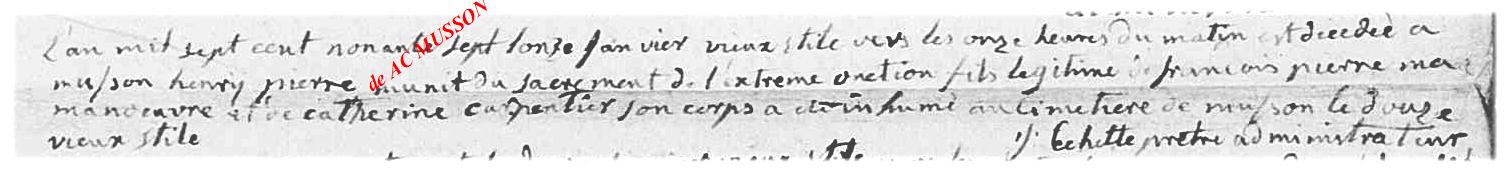 L'an mil sept cent nonante sept lonze Janvier vieux stile vers les onze heures du matin est decedée a
musson henry pierre munit du sacrement de l'extreme onction fils legitime de francois pierre
manoeuvre et de catherine carpentier son corps a eté inhumé au Cimetiere de musson le douze
vieux stile
J: Echette pretre administrateur
de AC MUSSON